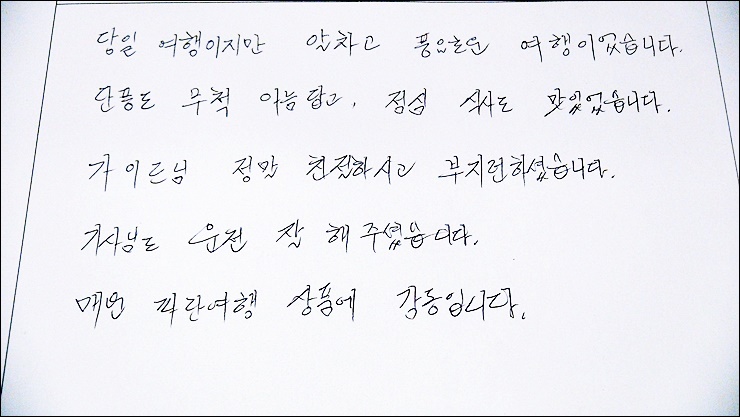 당일 여행이지만 알차고 풍요로운 여행이었습니다.
단풍도 무척 아름답고, 점심 식사도 맛있었습니다.
가이드님 정말 친절하시고 부지런하셨습니다.
기사님도 운전 잘 해 주셨습니다.
매번 파란여행 상품에 감동입니다.